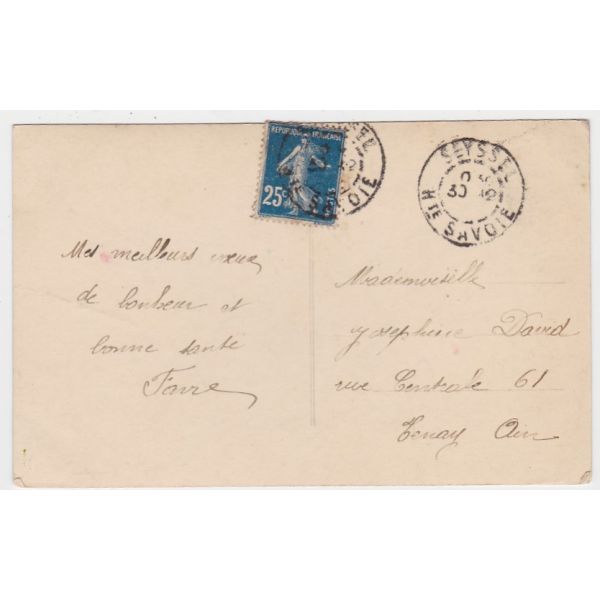 REPUBLIQUE FRANÇAISE
25c
POSTES
SEYSSEL
30
HTE SAVOIE
Mes meilleurs vœux
de bonheur et
bonne santé
Favre
Mademoiselle
Josephine David
rue Centrale 61
Tenay Ain